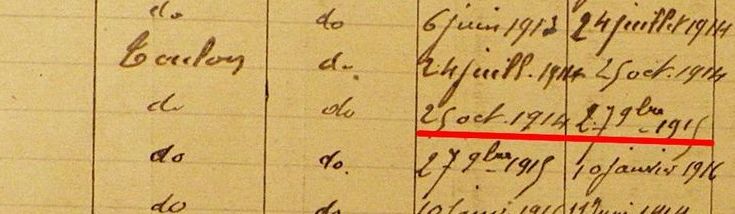 do do 6 juin 1913 24 juillet 1914
Toulon do 24 juill. 1914 25 oct. 1914
do do 25 oct. 1914 27 9bre 1915
do do. 27 9bre 1915 10 janvier 1916
do do